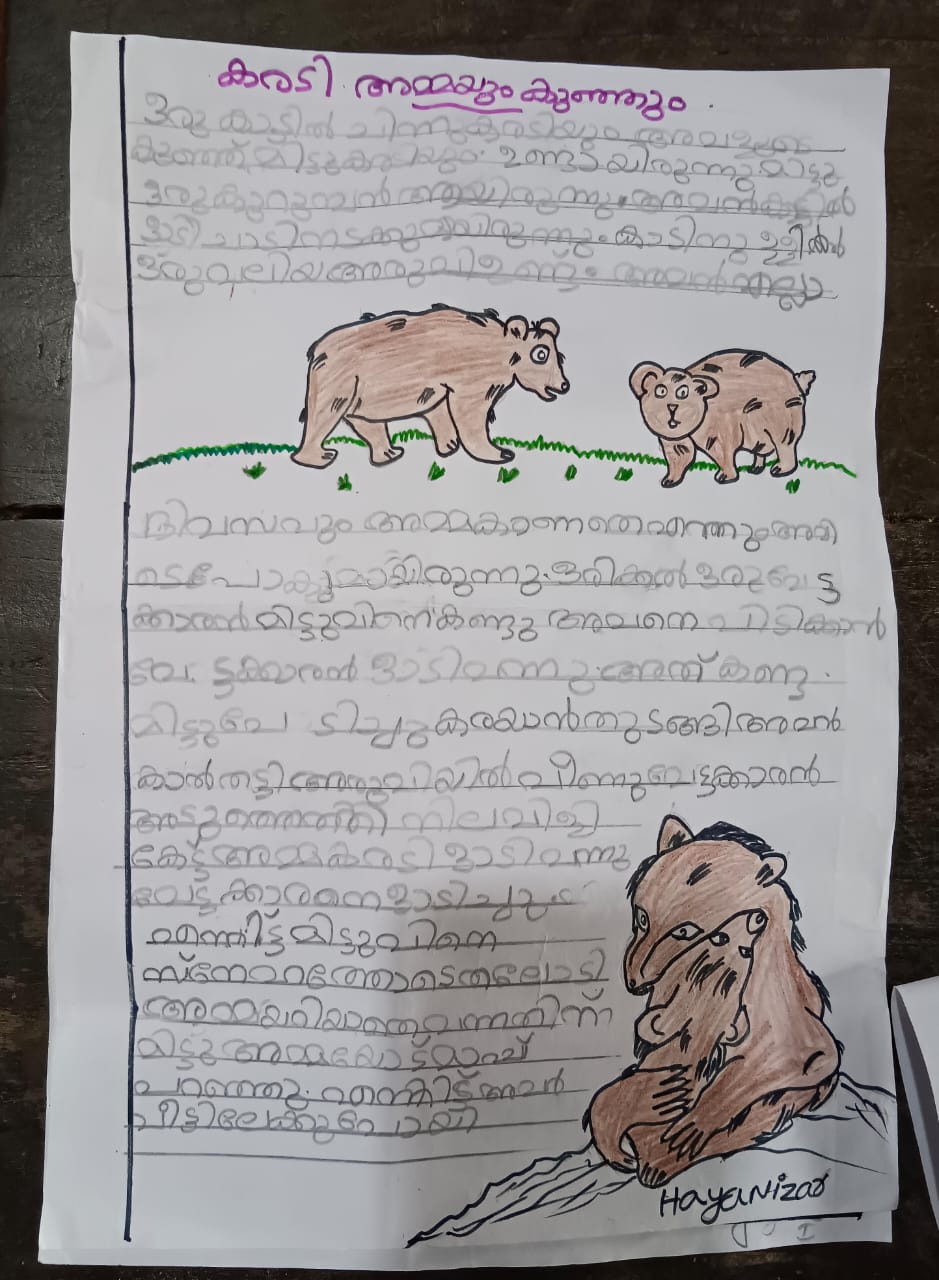 കരടി അമ്മയും കുഞ്ഞും
ഒരു കാട്ടിൽ ചിന്നുകരടിയും അവളുടെ
കുഞ്ഞ് മിട്ടുകരടിയും ഉണ്ടായിരുന്നു. മിട്ടു
ഒരു കുറുമ്പൻ ആയിരുന്നു. അവൻ കാട്ടിൽ
ഓടി ചാടി നടക്കുമായിരുന്നു. കാടിനു ഉള്ളിൽ
ഒരു വലിയ അരുവി ഉണ്ട്. അവൻ എല്ലാ
ദിവസവും അമ്മ കാണാതെ എന്നും അവി
ടെ പോകുമായിരുന്നു. ഒരിക്കൽ ഒരു വേട്ട
ക്കാരൻ മിട്ടുവിനെ കണ്ടു അവനെ പിടിക്കാൻ
വേട്ടക്കാരൻ ഓടി വന്നു. അത് കണ്ടു
മിട്ടു പേടിച്ചു കരയാൻ തുടങ്ങി അവൻ
കാൽ തട്ടി അരുവിയിൽ വീണു വേട്ടക്കാരൻ
അടുത്തെത്തി നിലവിളി
കേട്ട് അമ്മകരടി ഓടി വന്നു
വേട്ടക്കാരനെ ഓടിച്ചു
എന്നിട്ട് മിട്ടുവിനെ
സ്നേഹത്തോടെ തലോടി
അമ്മയറിയാതെ വന്നതിന്
മിട്ടു അമ്മയോട് മാപ്പ്
പറഞ്ഞു. എന്നിട്ട് അവർ
വീട്ടിലേക്കു പോയി
Haya Nizar